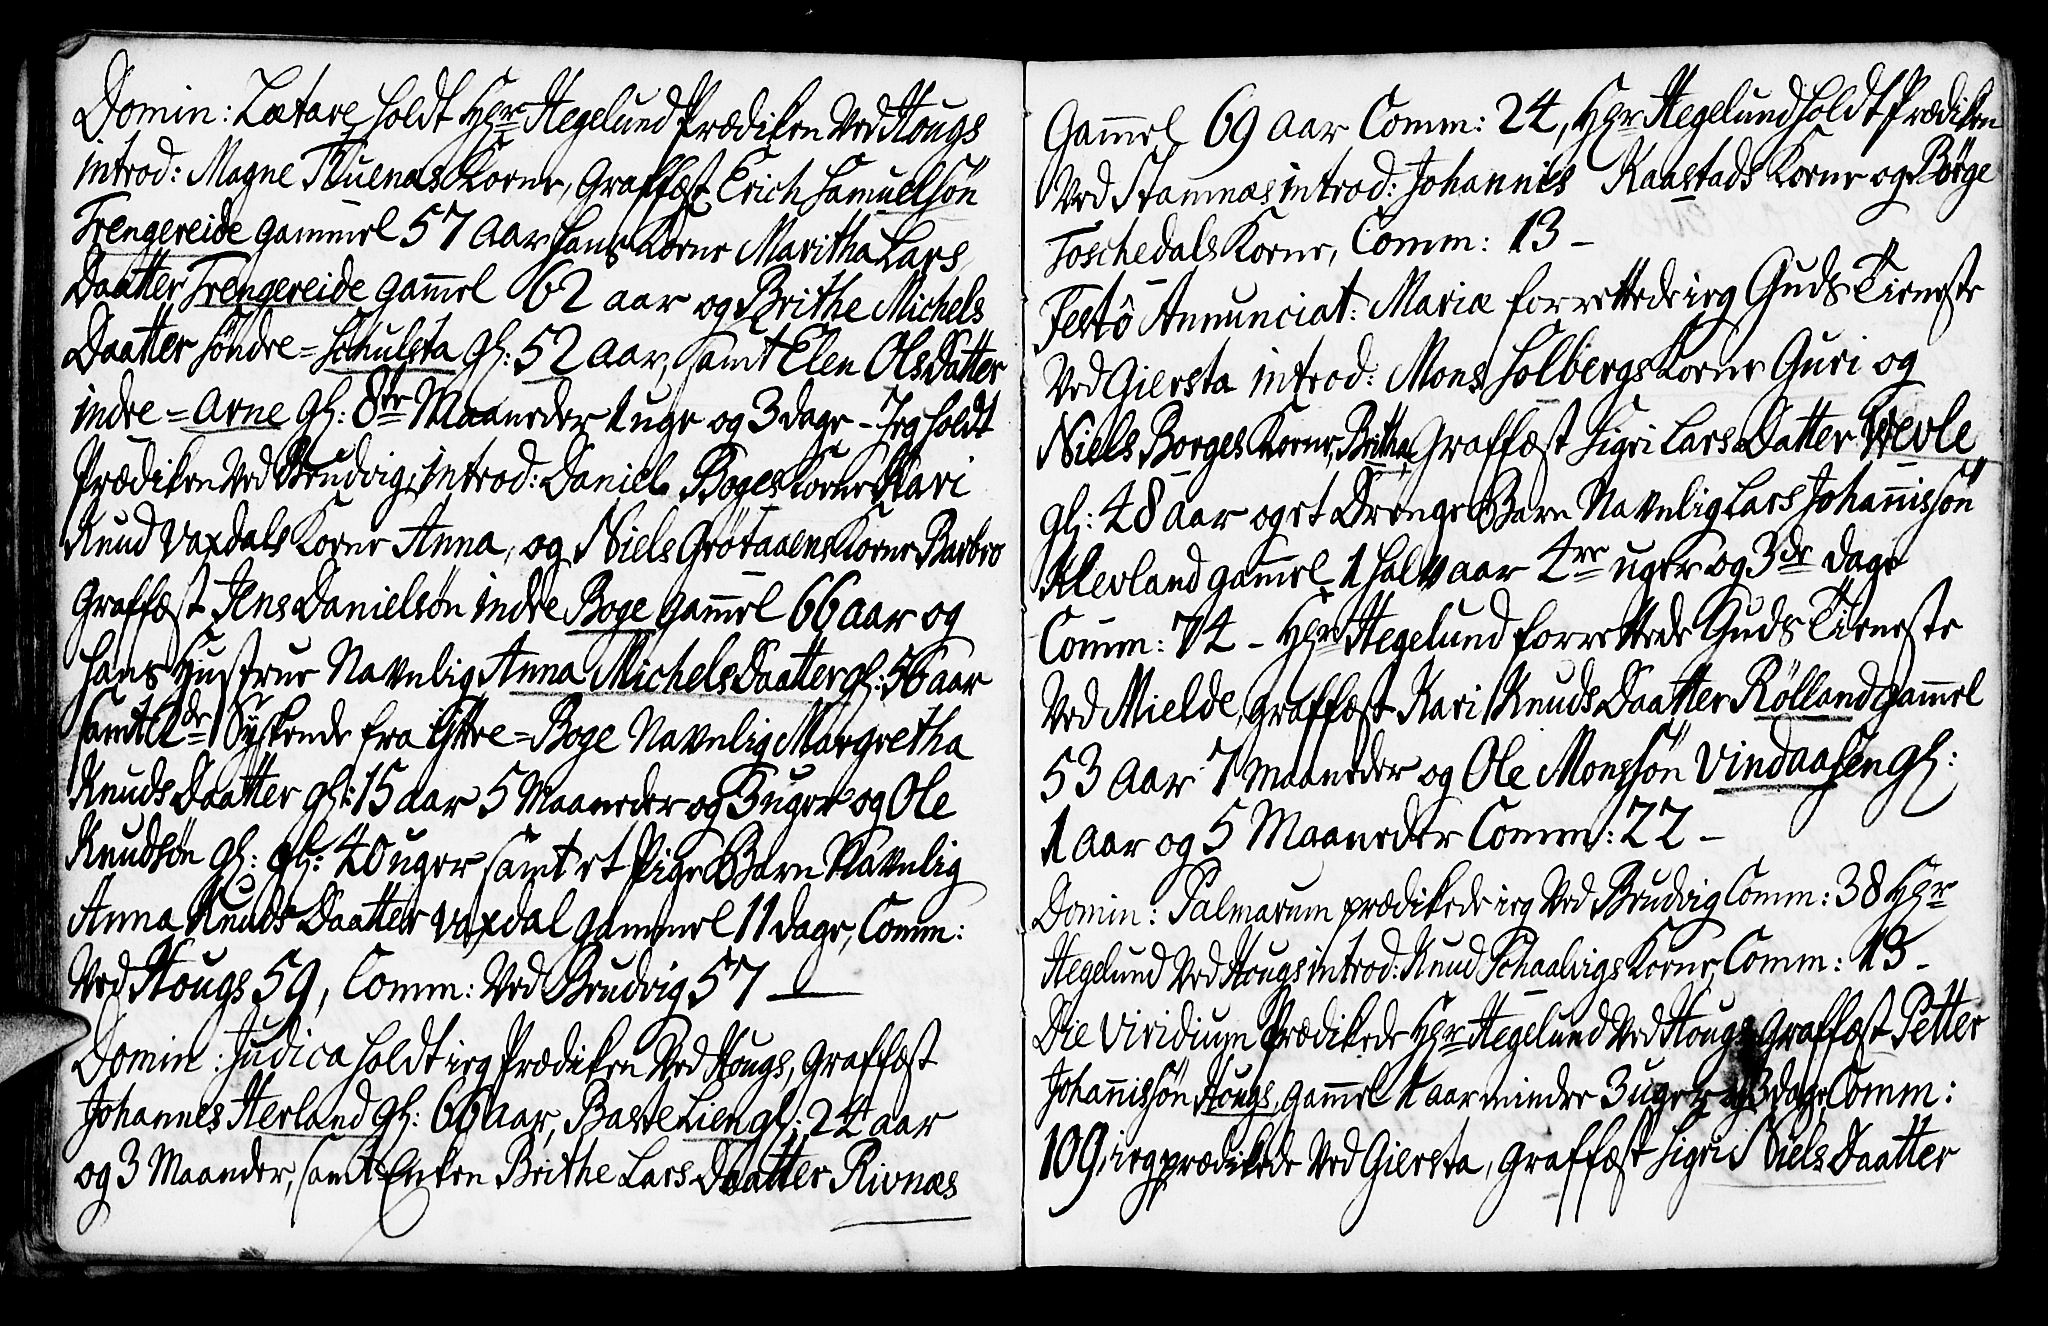 Domin: Lætare holdt Hgr Hegelund Prædiken Ved Hougs
introd: Magne Tuenæs Kone, Graffæst Erich Samuelsøn
Trengereide gammel 57 aar hans Kone Maritha Lars
Daatter Trengereide gam̅el 62 aar og Brithe Michels
Daatter Søndre = Schulsta gl: 52 aar, samt Elen Ols Datter
indre = Arne gl: 8te Maaneder 1 uge og 3 dage - Jeg holdt
Prædiken Ved Brudvig, introd: Daniel Boges Kone Kari
Knud Vaxdals Kone Anna, og Niels Grøtaaens Kone Barbro
Graffæst Jens Danielsøn indre Boge gam̅el 66 aar og
hans Hustrue Navnlig Anna Michels Daatter gl: 56 aar
samt 2de Syskende fra Yttre = Boge Navnlig Margretha
Knuds Daatter gl: 15 aar 5 Maaneder og 3 uger og Ole
Knudsøn gl: gl: 40 uger samt et Pige Barn Navnlig
Anna Knuds Daatter Vaxdal gammel 11 dage, Comm:
Ved Hougs 59, Comm: Ved Brudvig 57 —
Domin: Judica holdt ieg Prædiken Ved Hougs, Graffæst
Johannes Herland gl: 66 aar, Baste Lien gl: 24 aar
og 3 Maander, samt Enken Brithe Lars Daatter Rivnæs
Gam̅el 69 aar Comm: 24, Hgr Hegelund holdt Prædiken
Ved Stamnæs introd: Johannis Kaastads Kone og Børge
Toschedals Kone, Comm: 13 -
Festô Annunciat: Mariæ forrettede ieg Guds Tieneste
Ved Giersta introd: Mons Holbergs Kone Guri og
Niels Borges Kone, Britha, Graffæst Sigri Lars Datter Wevle
gl: 48 aar og et Drenge Barn Navnlig Lars Johan̅issøn
Klevland gam̅el 1 halv aar 4re uger og 3de dage
Comm: 74 - Hgr Hegelund forrettede Guds Tieneste
Ved Mielde, Graffæst Kari Knuds Daatter Rølland gam̅el
53 aar 7 Maaneder og Ole Monssøn Vindaasen gl:
1 aar og 5 Maaneder Comm: 22 -
Domin: Palmarum prædikede ieg Ved Brudvig Comm: 38 Hgr
Hegelund Ved Hougs introd: Knud Schaalvigs Kone, Comm: 13 -
Die Viridium Prædikede Hgr Hegelund Ved Hougs Graffæst Petter
Johan̅issøn Hougs, gam̅el 1 aar mindre 3 uger og 3 dage Comm:
109, ieg prædikede Ved Giersta, Graffæst Sigri Niels Daatter